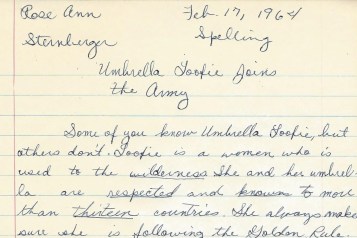 Rose Ann Feb. 17, 1964
Sternberger Spelling
Umbrella Toofie Joins
the Army
Some of you know Umbrella Toofie, but
others don't. Toofie is a women who is
used to the wilderness. She and her umbrel-
la are respected and knowns to more
than thirteen countries. She always makes
sure she is following the Golden Rule.